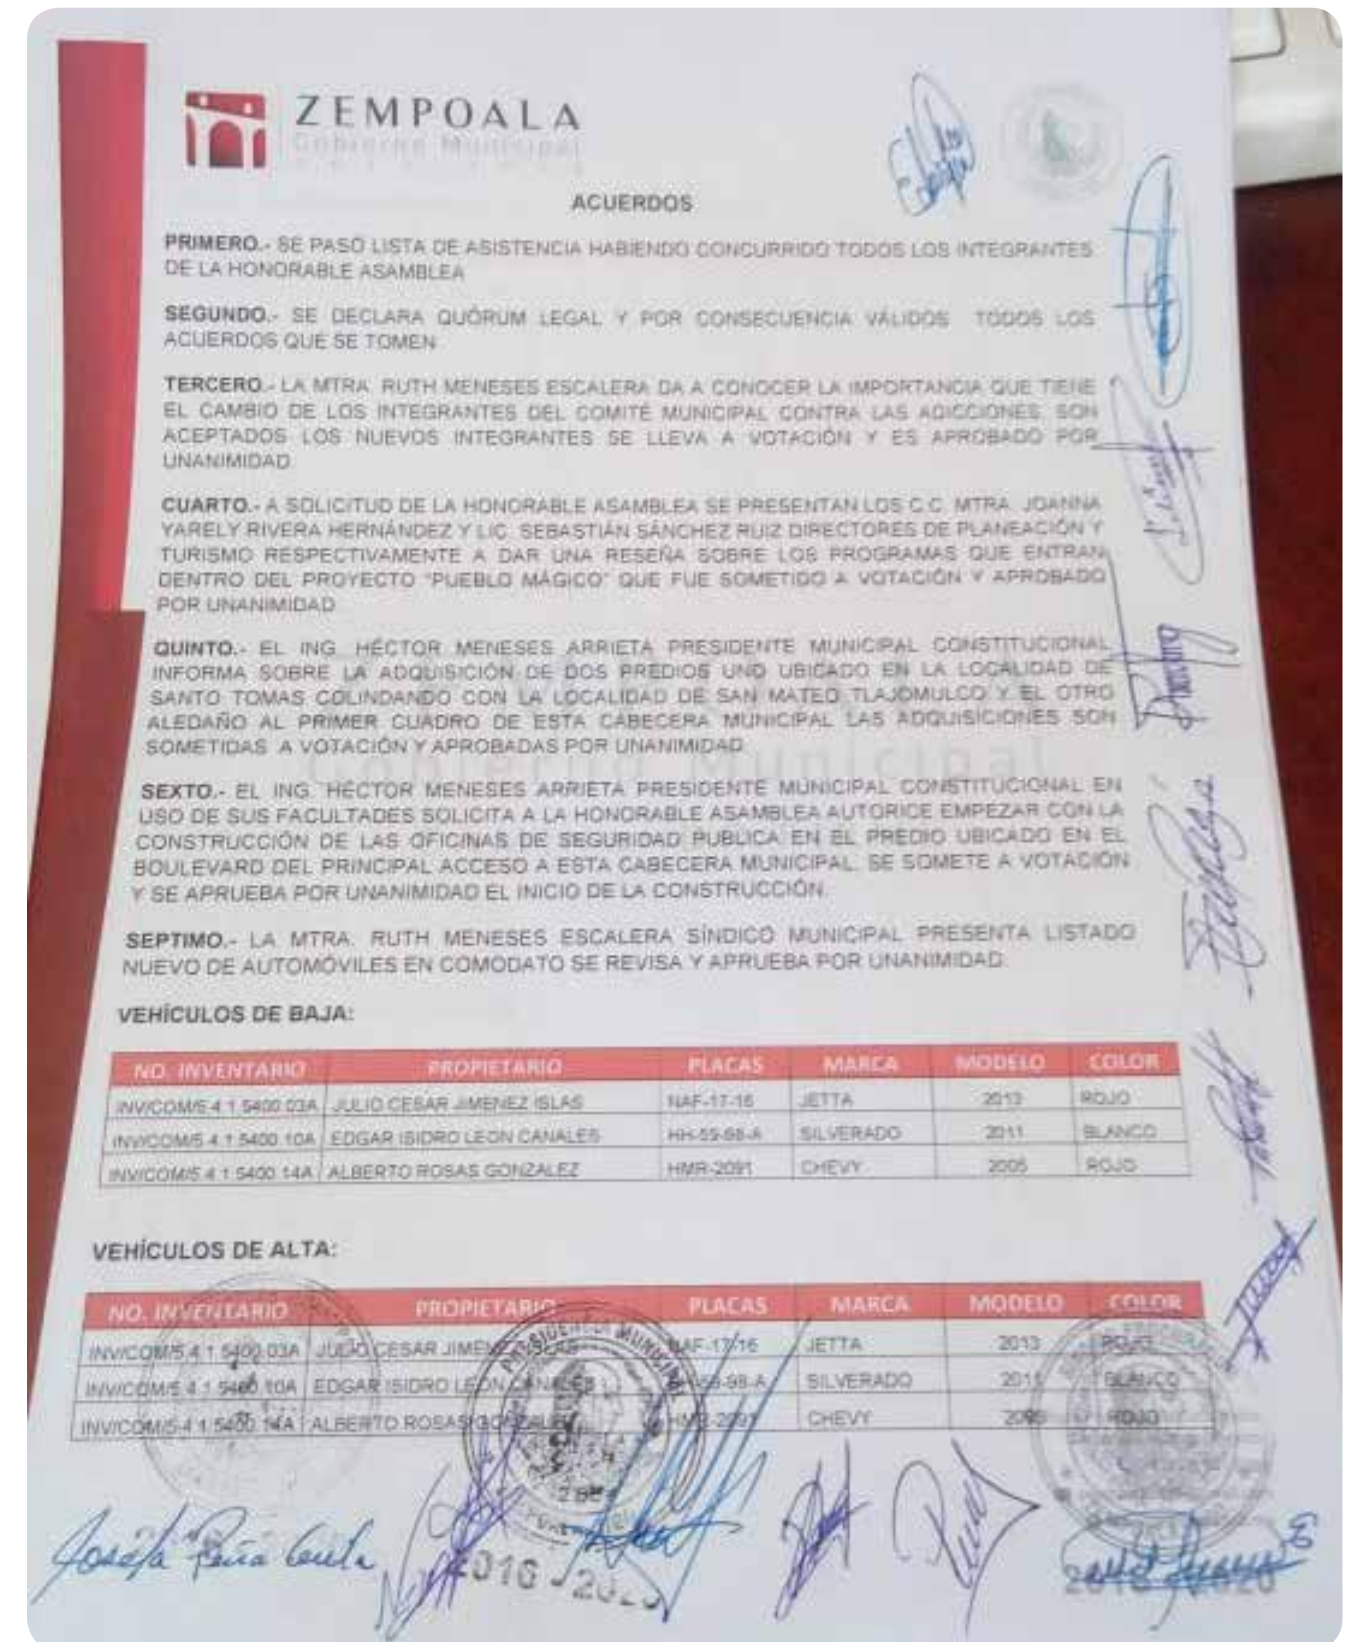 ZEMPOALA
Gobierno Municipal
ACUERDOS
PRIMERO.- SE PASÓ LISTA DE ASISTENCIA HABIENDO CONCURRIDO TODOS LOS INTEGRANTES
DE LA HONORABLE ASAMBLEA
SEGUNDO.- SE DECLARA QUÓRUM LEGAL Y POR CONSECUENCIA VÁLIDOS TODOS LOS
ACUERDOS QUE SE TOMEN
TERCERO.- LA MTRA. RUTH MENESES ESCALERA DA A CONOCER LA IMPORTANCIA QUE TIENE
EL CAMBIO DE LOS INTEGRANTES DEL COMITÉ MUNICIPAL CONTRA LAS ADICCIONES, SON
ACEPTADOS LOS NUEVOS INTEGRANTES SE LLEVA A VOTACIÓN Y ES APROBADO POR
UNANIMIDAD.
CUARTO.- A SOLICITUD DE LA HONORABLE ASAMBLEA SE PRESENTAN LOS C.C. MTRA. JOANNA
YARELY RIVERA HERNÁNDEZ Y LIC. SEBASTIÁN SÁNCHEZ RUIZ DIRECTORES DE PLANEACIÓN Y
TURISMO RESPECTIVAMENTE A DAR UNA RESEÑA SOBRE LOS PROGRAMAS QUE ENTRAN
DENTRO DEL PROYECTO "PUEBLO MÁGICO" QUE FUE SOMETIDO A VOTACIÓN Y APROBADO
POR UNANIMIDAD
QUINTO.- EL ING. HÉCTOR MENESES ARRIETA PRESIDENTE MUNICIPAL CONSTITUCIONAL
INFORMA SOBRE LA ADQUISICIÓN DE DOS PREDIOS UNO UBICADO EN LA LOCALIDAD DE
SANTO TOMAS COLINDANDO CON LA LOCALIDAD DE SAN MATEO TLAJOMULCO Y EL OTRO
ALEDAÑO AL PRIMER CUADRO DE ESTA CABECERA MUNICIPAL LAS ADQUISICIONES SON
SOMETIDAS A VOTACIÓN Y APROBADAS POR UNANIMIDAD
Gobierno Municipal
SEXTO.- EL ING. HÉCTOR MENESES ARRIETA PRESIDENTE MUNICIPAL CONSTITUCIONAL EN
USO DE SUS FACULTADES SOLICITA A LA HONORABLE ASAMBLEA AUTORICE EMPEZAR CON LA
CONSTRUCCIÓN DE LAS OFICINAS DE SEGURIDAD PUBLICA EN EL PREDIO UBICADO EN EL
BOULEVARD DEL PRINCIPAL ACCESO A ESTA CABECERA MUNICIPAL. SE SOMETE A VOTACIÓN
Y SE APRUEBA POR UNANIMIDAD EL INICIO DE LA CONSTRUCCIÓN.
SEPTIMO.- LA MTRA. RUTH MENESES ESCALERA SÍNDICO MUNICIPAL PRESENTA LISTADO
NUEVO DE AUTOMÓVILES EN COMODATO SE REVISA Y APRUEBA POR UNANIMIDAD.
VEHÍCULOS DE BAJA:
NO. INVENTARIO PROPIETARIO PLACAS MARCA MODELO COLOR
INV/COM/5.4.1.5400.03A JULIO CESAR JIMENEZ ISLAS NAF-17-16 JETTA 2013 ROJO
INV/COM/5.4.1.5400.10A EDGAR ISIDRO LEON CANALES SILVERADO 2011 BLANCO
INV/COM/5.4.1.5400.14A ALBERTO ROSAS GONZALEZ HMR-2091 CHEVY 2005 ROJO
VEHÍCULOS DE ALTA:
NO. INVENTARIO PROPIETARIO PLACAS MARCA MODELO COLOR
INV/COM/5.4.1.5400.03A JULIO CESAR JIMENEZ ISLAS NAF-17-16 JETTA 2013 ROJO
INV/COM/5.4.1.5400.10A EDGAR ISIDRO LEON CANALES SILVERADO 2011 BLANCO
INV/COM/5.4.1.5400.14A ALBERTO ROSAS HMR-2091 CHEVY ROJO
PRESIDENCIA MUNICIPAL
Josefa Peña
2016 - 2020